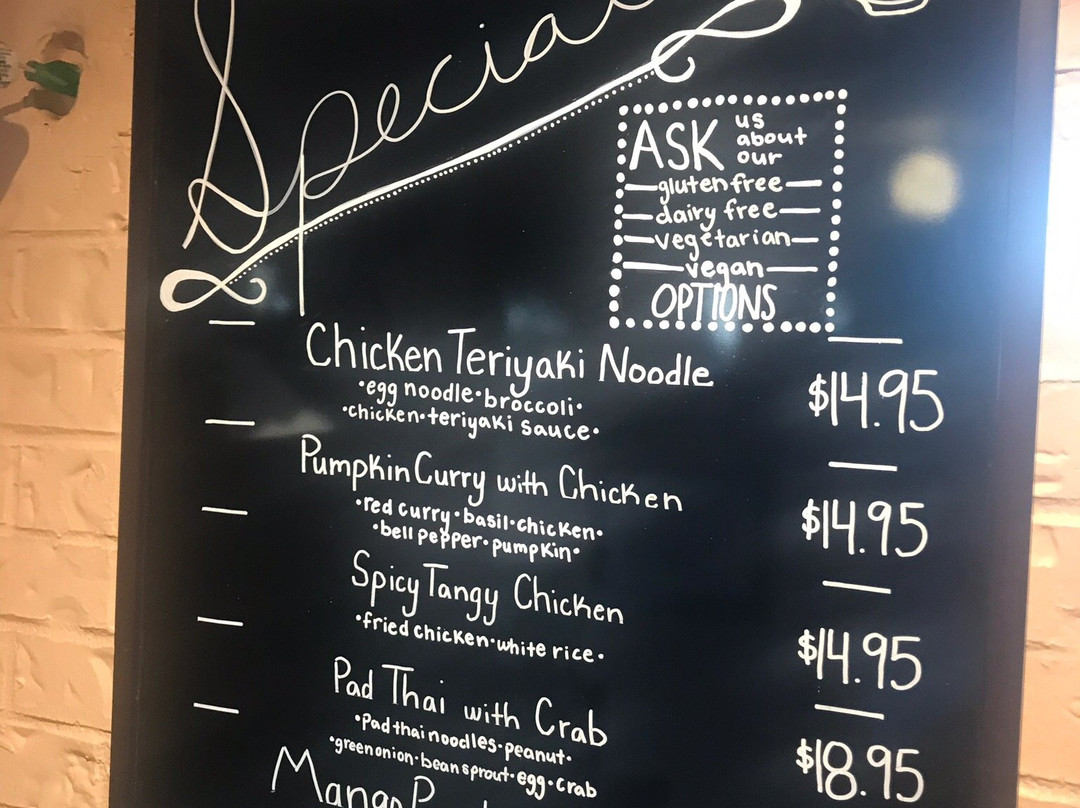 ASK us
about
our
gluten free
dairy free
vegetarian
vegan
OPTIONS
Chicken Teriyaki Noodle
•egg noodle•broccoli•
•chicken•teriyaki sauce•
$14.95
Pumpkin Curry with Chicken
•red curry•basil•chicken•
•bell pepper•pumpkin•
$14.95
Spicy Tangy Chicken
•fried chicken•white rice•
$14.95
Pad Thai with Crab
•Pad thai noodles•peanut•
•green onion•bean sprout•egg•crab
$18.95
Mango